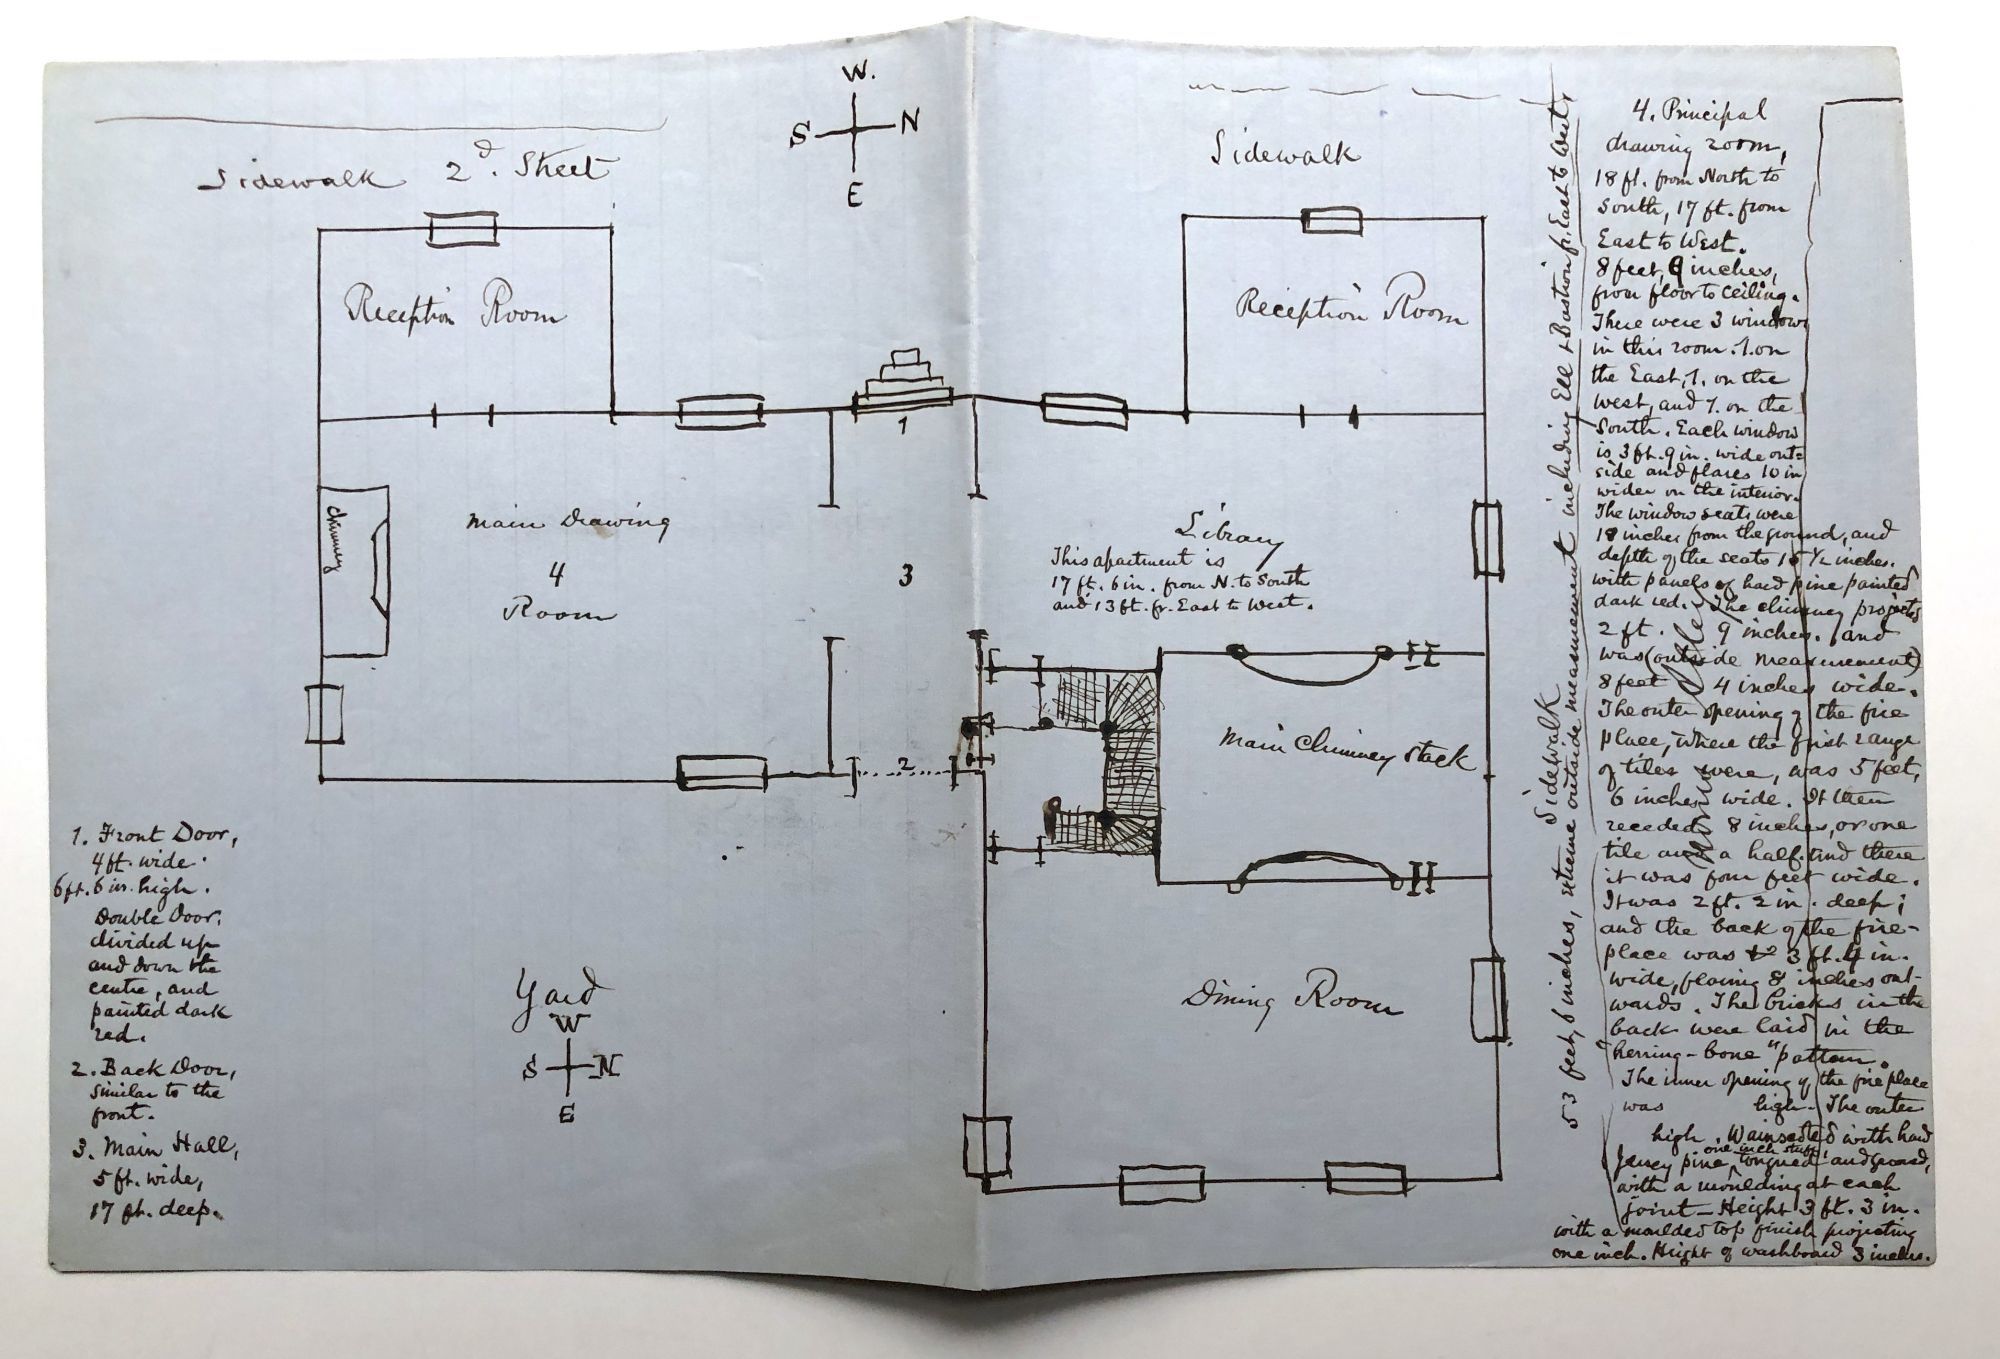 W.
S N
E
Sidewalk 2d. Street
Sidewalk
Reception Room
Reception Room
1
Main Drawing
4
Room
Chimney
3
Library
This apartment is
17 ft. 6 in. from N. to South
and 13 ft. fr. East to West.
Main Chimney Stack
2
Dining Room
Yard
W
S N
E
1. Front Door,
4 ft. wide.
6 ft. 6 in. high.
Double Door,
divided up
and down the
centre, and
painted dark
red.
2. Back Door,
similar to the
front.
3. Main Hall,
5 ft. wide,
17 ft. deep.
Sidewalk
53 feet, 6 inches, extreme outside measurement including Ell & Bastion fr. East to West.
4. Principal
drawing room,
18 ft. from North to
South, 17 ft. from
East to West.
8 feet, inches,
from floor to ceiling.
There were 3 windows
in this room. 1. on
the East, 1. on the
West, and 1. on the
South. Each window
is 3 ft. 9 in. wide out=
side and flares 10 in
wider on the interior.
The window seats were
18 inches from the ground, and
depth of the seats 15 1/2 inches.
with panels of hard pine painted
dark red. The chimney projects
2 ft. 9 inches. and
was (outside measurement)
8 feet 4 inches wide.
The outer opening of the fire
place, where the first range
of tiles were, was 5 feet,
6 inches wide. It then
receded 8 inches, or one
tile and a half. And there
it was four feet wide.
It was 2 ft. 2 in. deep;
and the back of the fire-
place was 3 ft. 4 in.
wide, flaring 8 inches out-
wards. The bricks in the
back were laid in the
"herring-bone" pattern.
The inner opening of the fire place
was high. The outer
high. Wainscoted with hard
one inch stuff,
Jersey pine, tongued and grooved,
with a moulding at each
joint - Height 3 ft. 3 in.
with a moulded top finish projecting
one inch. Height of washboard 3 inches.